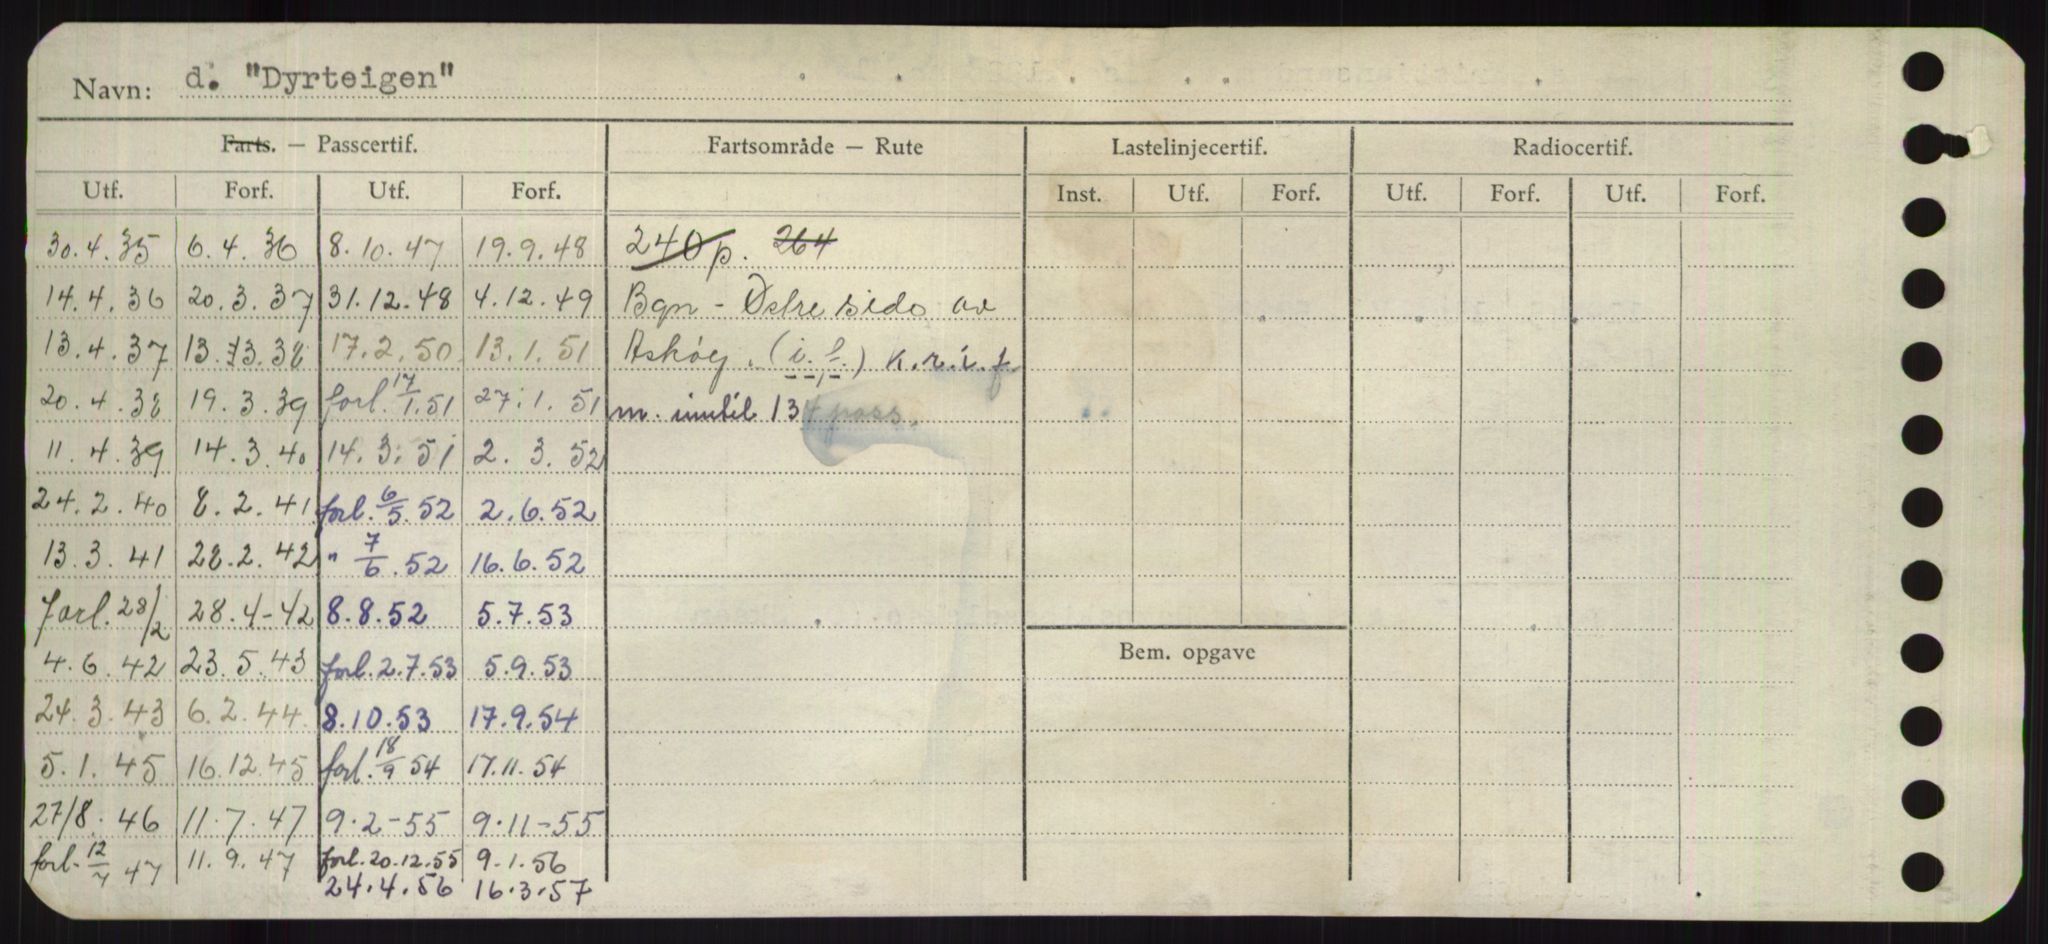 Navn: d. "Dyrteigen"
Farts. — Passcertif. Fartsområde — Rute Lastelinjecertif. Radiocertif.
Utf. Forf. Utf. Forf. Inst. Utf. Forf. Utf. Forf. Utf. Forf.
30.4.35 6.4.36 8.10.47 19.9.48 240 p. 264
14.4.36 20.3.37 31.12.48 4.12.49 Bgn - Østre side av
13.4.37 13.3.38 17.2.50 13.1.51 Askøy. (i.f.) K.r.i.f
20.4.38 19.3.39 forl. 17/1.51 27.1.51 m. inntil 134 pass.
11.4.39 14.3.40 14.3.51 2.3.52
24.2.40 8.2.41 forl. 6/5.52 2.6.52
13.3.41 28.2.42 " 7/6.52 16.6.52
Forl. 28/2 28.4-42 8.8.52 5.7.53
4.6.42 23.5.43 forl. 2.7.53 5.9.53 Bem. opgave
24.3.43 6.2.44 8.10.53 17.9.54
5.1.45 16.12.45 forl. 18/9 54 17.11.54
27/8.46 11.7.47 9.2-55 9.11-55
forl. 12/7 47 11.9.47 forl. 20.12.55 9.1.56
24.4.56 16.3.57